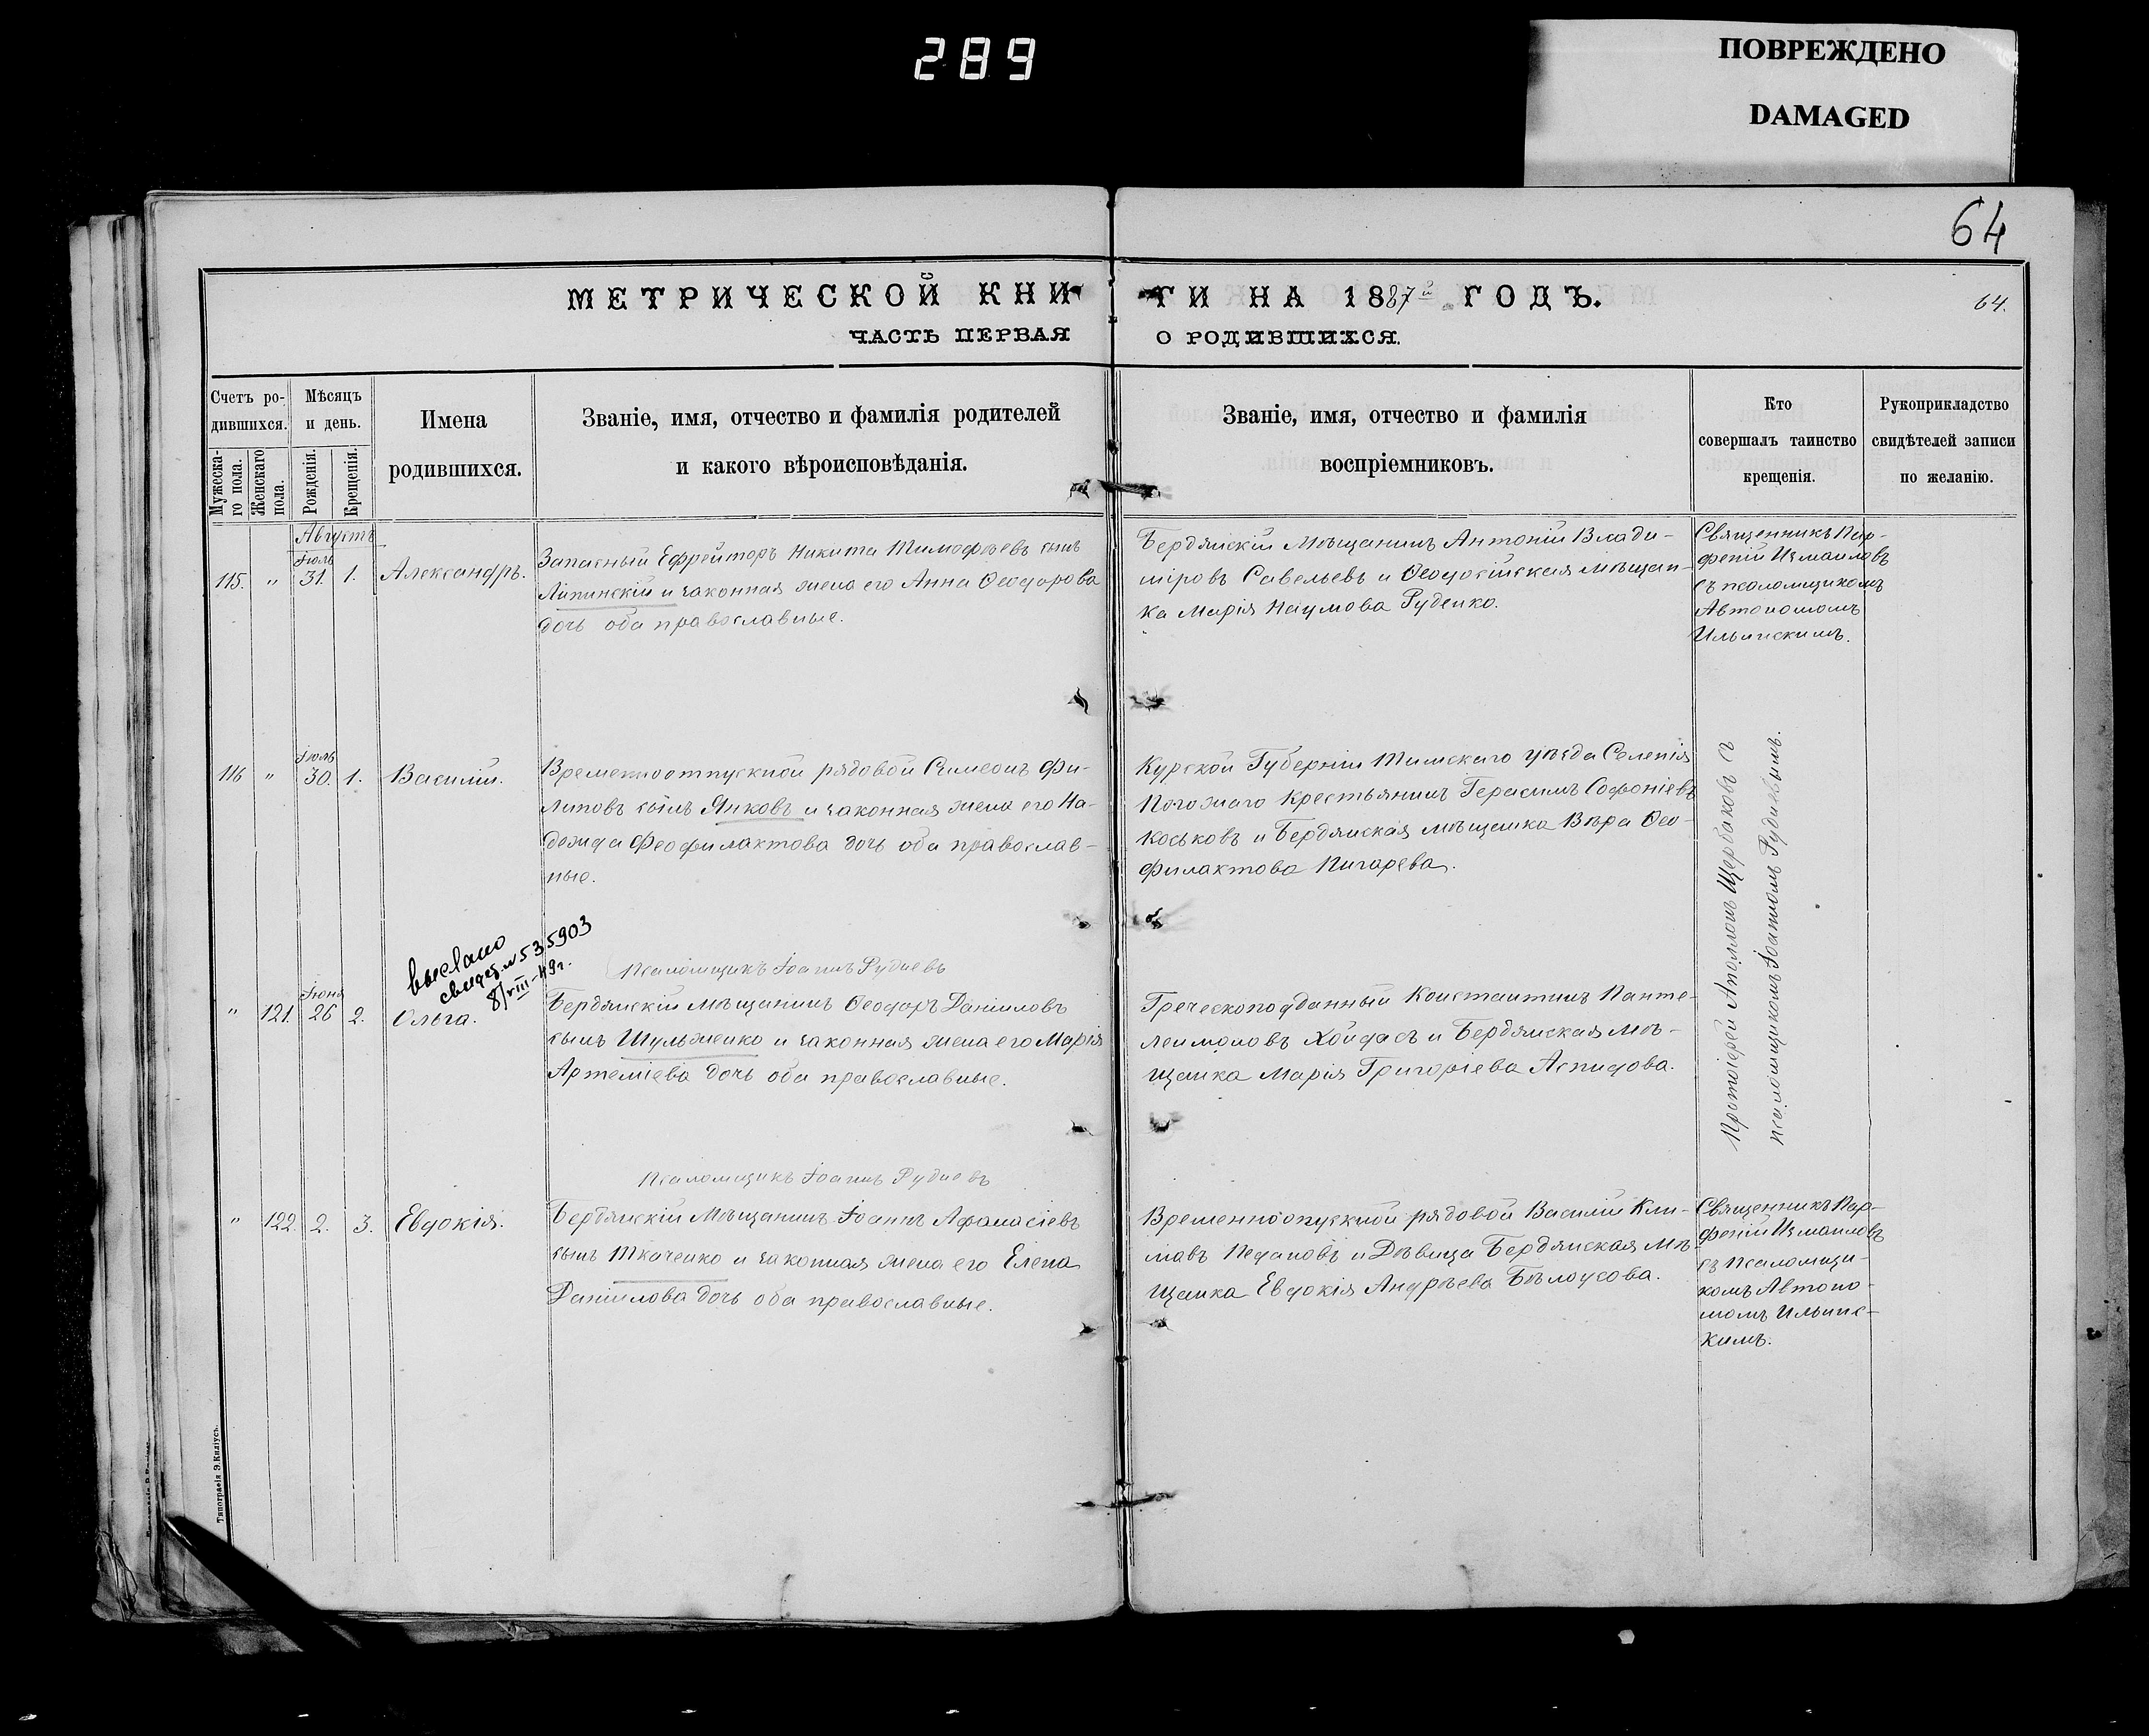 289
ПОВРЕЖДЕНО
DAMAGED
64
МЕТРИЧЕСКОЙ КНИГИ НА 1887й ГОДЪ.
64.
ЧАСТЬ ПЕРВАЯ О РОДИВШИХСЯ.
Счетъ ро-
дившихся.
Мужеска-
го пола.
Женскаго
пола.
Мѣсяцъ
и день.
Рожденія.
Крещенія.
Имена
родившихся.
Званіе, имя, отчество и фамилія родителей
и какого вѣроисповѣданія.
Званіе, имя, отчество и фамилія
воспріемниковъ.
Кто
совершалъ таинство
крещенія.
Рукоприкладство
свидѣтелей записи
по желанію.
Августъ
Іюль
115. " 31. 1. Александръ.
Запасный Ефрейторъ Никита Тимофѣевъ сынъ
Липинскій и законная жена его Анна Ѳеодорова
дочь оба православные.
Бердянскій Мѣщанинъ Антоній Влади-
міровъ Савельевъ и Ѳеодосійская мѣщан-
ка Марія Наумова Руденко.
Священникъ Пар-
феній Измаиловъ
съ псаломщикомъ
Автономомъ
Ильинскимъ.
Іюль
116 " 30. 1. Василій.
Временноотпускной рядовой Сѵмеонъ Фи-
липовъ сынъ Янковъ и законная жена его На-
дежда Феофилактова дочь оба православ-
ные.
Курской Губерніи Тимскаго уѣзда Селенія
Погожаго Крестьянинъ Герасимъ Софоніевъ
Коськовъ и Бердянская мѣщанка Вѣра Ѳео-
филактова Пигарева.
Протоіерей Аполлонъ Щербаковъ съ
псаломщикомъ Іоанномъ Рудневымъ.
выслано
свидет. № 535903
8/VIII-49г.
Псаломщикъ Іоаннъ Рудневъ
Іюня
" 121. 26 2. Ольга.
Бердянскій Мѣщанинъ Ѳеодоръ Даніиловъ
сынъ Шульженко и законная жена его Марія
Артеміева дочь оба православные.
Греческоподданный Константинъ Панте-
леимоновъ Хойдасъ и Бердянская Мѣ-
щанка Марія Григоріева Аспидова.
Псаломщикъ Іоаннъ Рудневъ
" 122 2. 3. Евдокія.
Бердянскій Мѣщанинъ Іоаннъ Афанасіевъ
сынъ Ткаченко и законная жена его Елена
Даніилова дочь оба православные.
Временноопускной рядовой Василій Кли-
мовъ и Дѣвица Бердянская Мѣ-
щанка Евдокія Андрѣева Бѣлоусова.
Священникъ Пар-
феній Измаиловъ
съ Псаломщи-
комъ Автоно-
момъ Ильинс-
кимъ.
Типографія Э.Килiусъ.